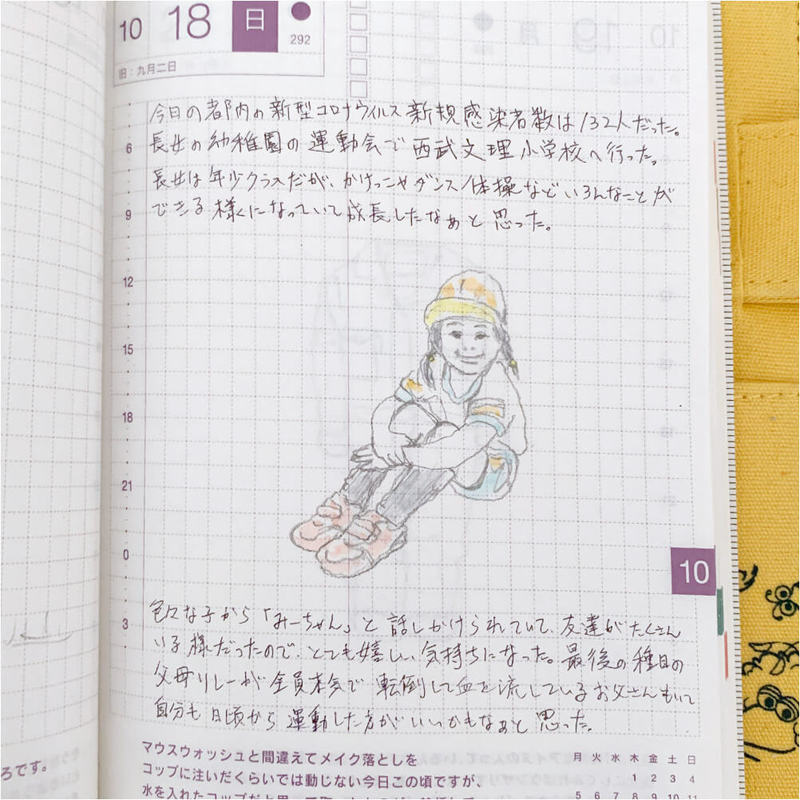 10 18 日
292
旧:九月二日
今日の都内の新型コロナウイルス新規感染者数は132人だった。
長女の幼稚園の運動会で西武文理小学校へ行った。
長女は年少クラスだが、かけっこやダンス/体操などいろんなことが
できる様になっていて成長したなぁと思った。
6
9
12
15
18
21
0
3
10
色々な子から「みーちゃん」と話しかけられていて、友達がたくさん
いる様だったので、とても嬉しい気持ちになった。最後の種目の
父母リレーが全員本気で転倒して血を流しているお父さんもいて
自分も日頃から運動した方がいいかもなぁと思った。
マウスウォッシュと間違えてメイク落としを
コップに注いだくらいでは動じない今日この頃ですが、
月 火 水 木 金 土 日
1 2 3 4
5 6 7 8 9 10 11
ろです。